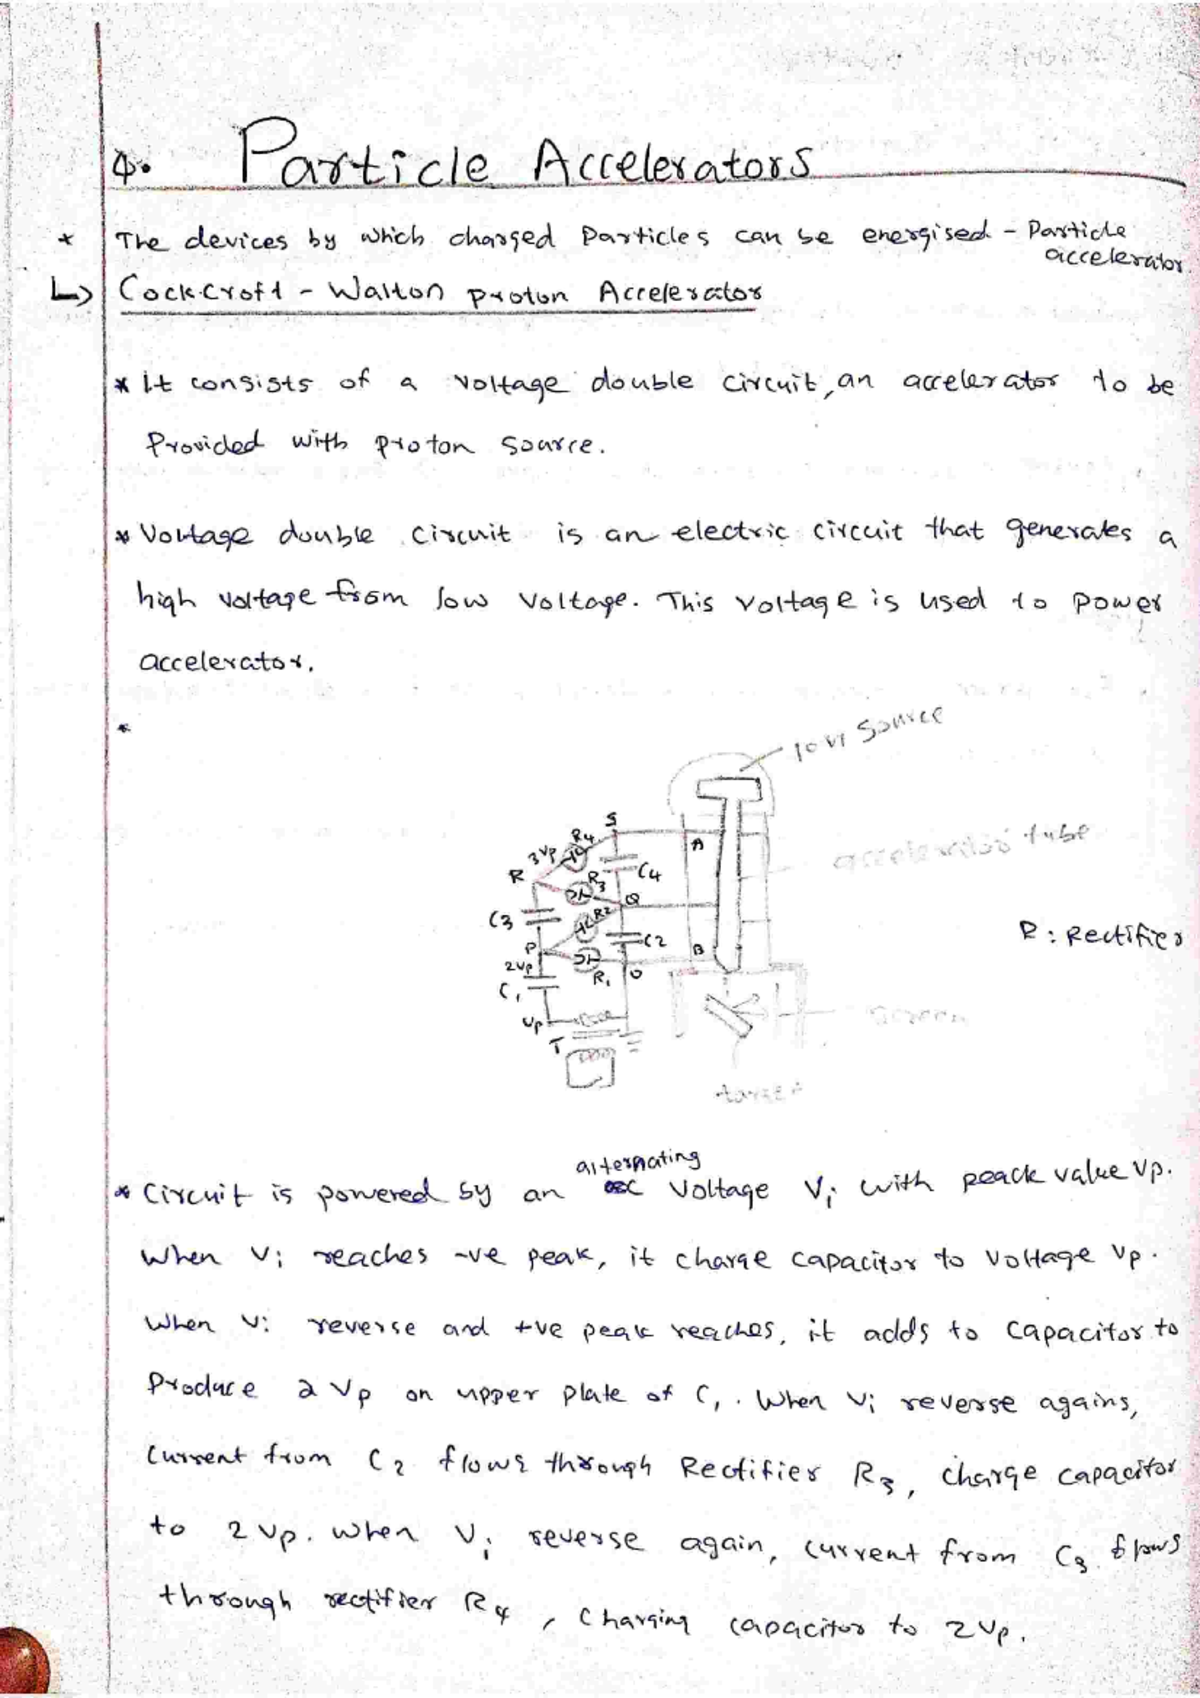 4. Particle Accelerators
* The devices by which charged particles can be energised - Particle
accelerator
↳ Cockcroft - Walton proton Accelerator
* It consists of a voltage double circuit, an accelerator to be
Provided with proton source.
* Voltage double circuit is an electric circuit that generates a
high voltage from low voltage. This voltage is used to power
accelerator.
*
ion source
S
R4
3Vp
A
accelerator tube
R
R3
C4
Q
C3
R2
R : Rectifier
P
C2
B
2Vp
R1
O
C1
screen
Vp
T
target
alternating
* Circuit is powered by an voltage Vi with peack value Vp.
When Vi reaches -ve peak, it charge capacitor to voltage Vp.
When Vi reverse and +ve peak reaches, it adds to capacitor to
Produce 2Vp on upper plate of C1. When Vi reverse agains,
Current from C2 flows through Rectifier R3, charge capacitor
to 2Vp. When Vi reverse again, current from C3 flows
through rectifier R4, charging capacitor to 2Vp.